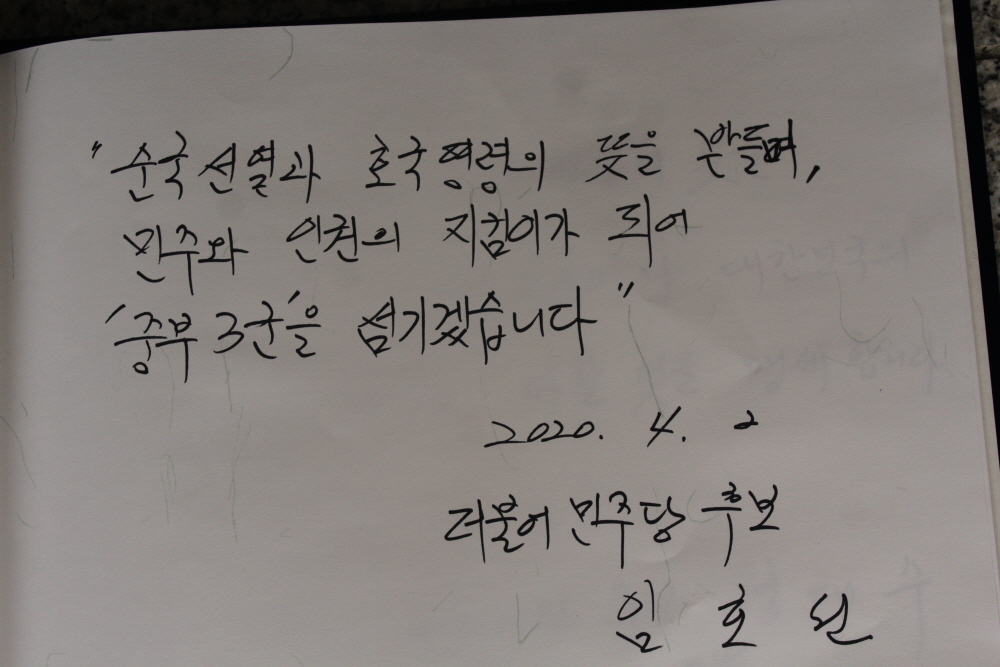 "순국선열과 호국영령의 뜻을 받들며,
민주와 인권의 지킴이가 되어
'중부3군'을 섬기겠습니다"
2020. 4. 2
더불어민주당 후보
임 호 선